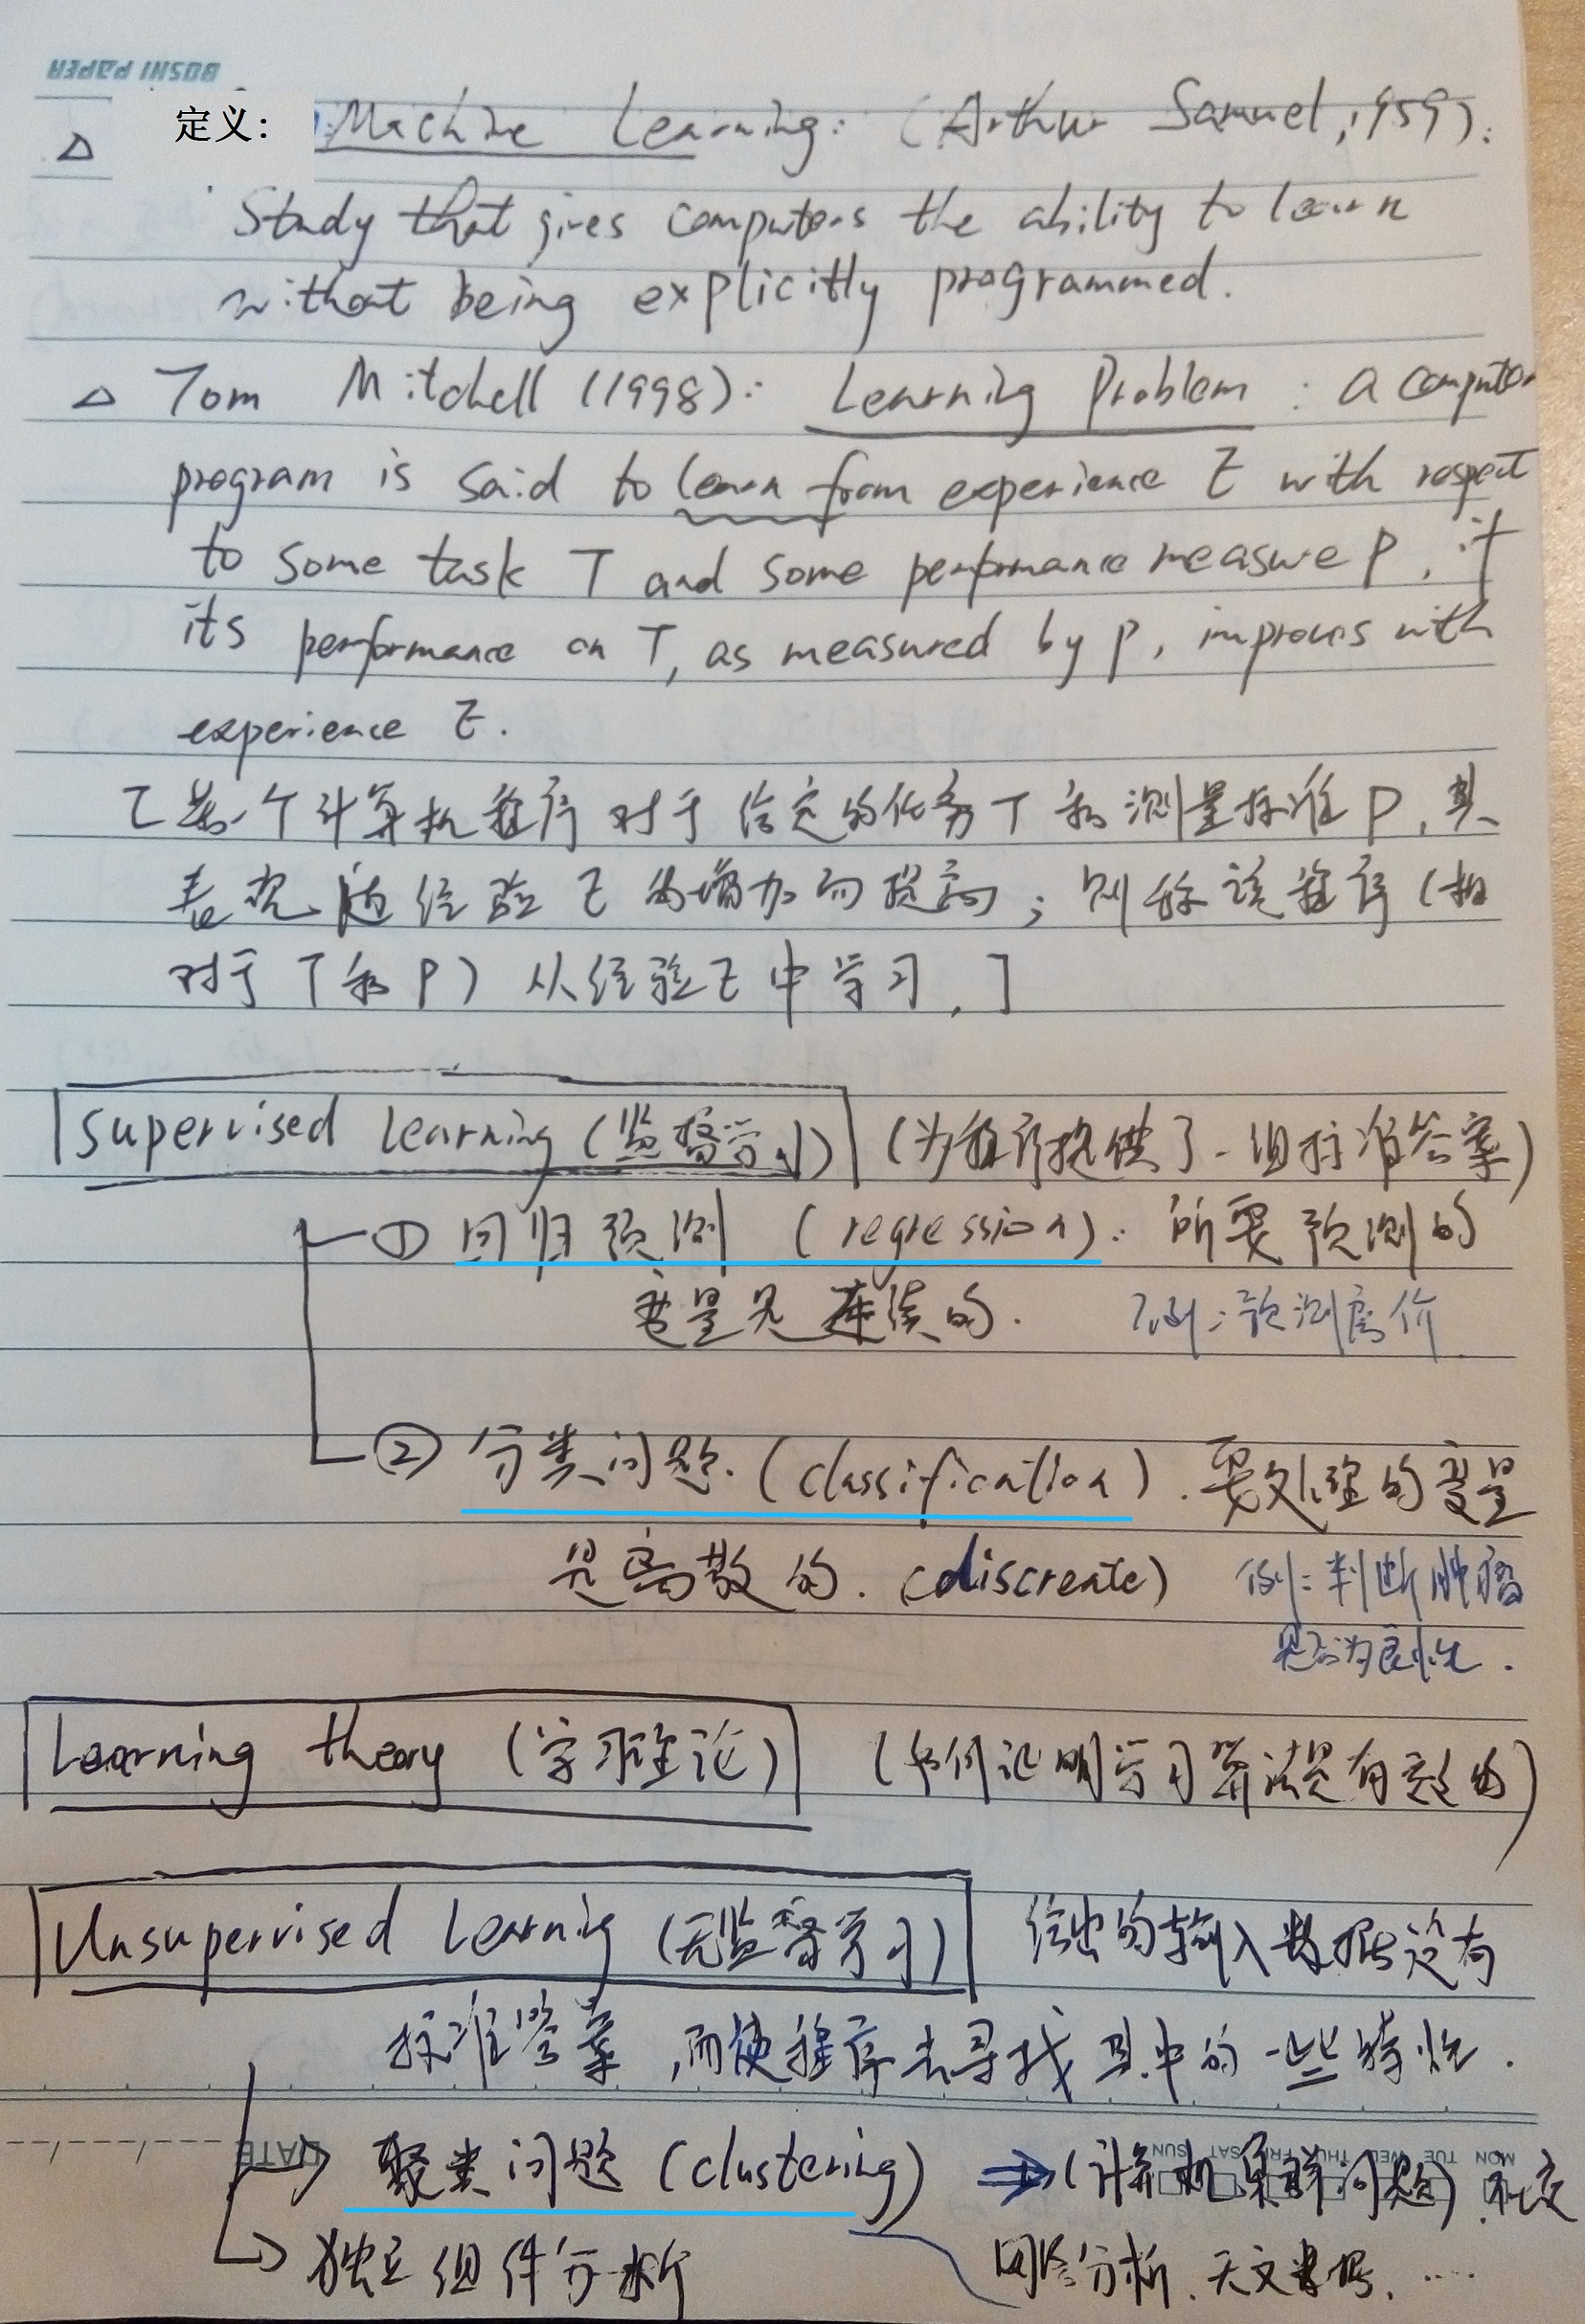 BOSHI PAPER
△ 定义: Machine Learning: (Arthur Samuel, 1959).
Study that gives computers the ability to learn
without being explicitly programmed.
△ Tom Mitchell (1998): Learning Problem: a computer
program is said to learn from experience E with respect
to some task T and some performance measure P, if
its performance on T, as measured by P, improves with
experience E.
[若一个计算机程序对于给定的任务T和测量标准P,其
表现随经验E的增加而提高;则称该程序(相
对于T和P)从经验E中学习.]
Supervised Learning (监督学习) (为程序提供了一组标准答案)
① 回归预测 (regression): 所要预测的
变量是连续的. 例:预测房价.
② 分类问题.(classification). 要处理的变量
是离散的.(discreate) 例:判断肿瘤
是否为良性.
Learning theory (学习理论) (如何证明学习算法是有效的)
Unsupervised Learning (无监督学习) 给出的输入数据没有
标准答案,而使程序去寻找其中的一些特性.
DATE MON TUE WED THU FRI SAT SUN
→ 聚类问题 (clustering) ⇒ (计算机集群问题).社交
→ 独立组件分析 网络分析.天文数据.….